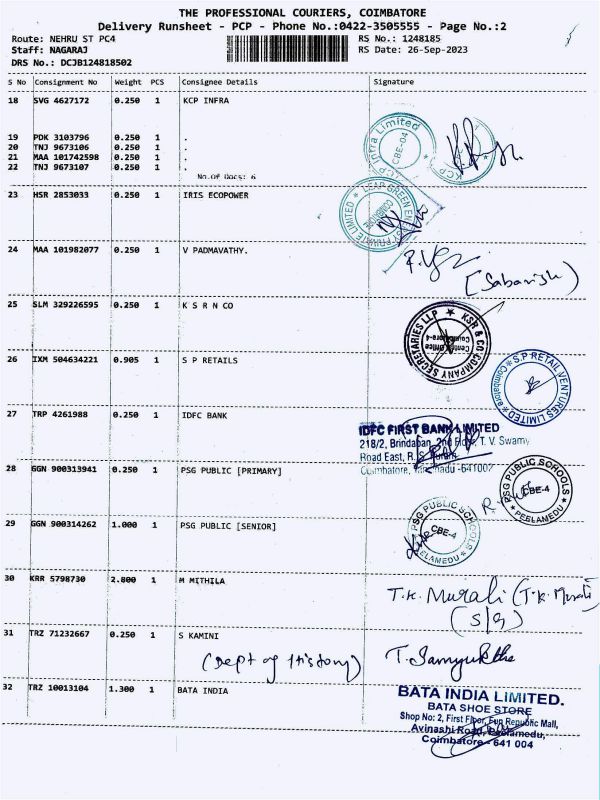 THE PROFESSIONAL COURIERS, COIMBATORE
Delivery Runsheet - PCP - Phone No.:0422-3505555 - Page No.:2
Route: NEHRU ST PC4 RS No.: 1248185
Staff: NAGARAJ RS Date: 26-Sep-2023
DRS No.: DCJB124818502
S No Consignment No Weight PCS Consignee Details Signature
18 SVG 4627172 0.250 1 KCP INFRA
19 PDK 3103796 0.250 1 .
20 TNJ 9673106 0.250 1 .
21 MAA 101742598 0.250 1 .
22 TNJ 9673107 0.250 1 .
No.Of Docs: 6
Infra Limited
CBE-04
KCP
23 HSR 2853033 0.250 1 IRIS ECOPOWER
LEAP GREEN ENERGY PRIVATE LIMITED
COIMBATORE
24 MAA 101982077 0.250 1 V PADMAVATHY.
(Sabarish)
25 SLM 329226595 0.250 1 K S R N CO
KSR & CO COMPANY SECRETARIES LLP
Central Office
Coimbatore-4
26 IXM 504634221 0.905 1 S P RETAILS
S.P. RETAIL VENTURES LIMITED
Coimbatore
27 TRP 4261988 0.250 1 IDFC BANK
IDFC FIRST BANK LIMITED
218/2, Brindaban, 2nd Floor, T. V. Swamy
Road East, R. S. Puram
Coimbatore, Tamilnadu -641002
28 GGN 900313941 0.250 1 PSG PUBLIC [PRIMARY]
PSG PUBLIC SCHOOLS
CBE-4
PEELAMEDU
29 GGN 900314262 1.000 1 PSG PUBLIC [SENIOR]
PSG PUBLIC SCHOOLS
CBE-4
PEELAMEDU
30 KRR 5798730 2.800 1 M MITHILA
T.K. Murali (T.K. Murali)
31 TRZ 71232667 0.250 1 S KAMINI
(Dept of History) T. Samyuktha
32 TRZ 10013104 1.300 1 BATA INDIA
BATA INDIA LIMITED.
BATA SHOE STORE
Shop No: 2, First Floor, Fun Republic Mall,
Avinashi Road, Peelamedu,
Coimbatore - 641 004